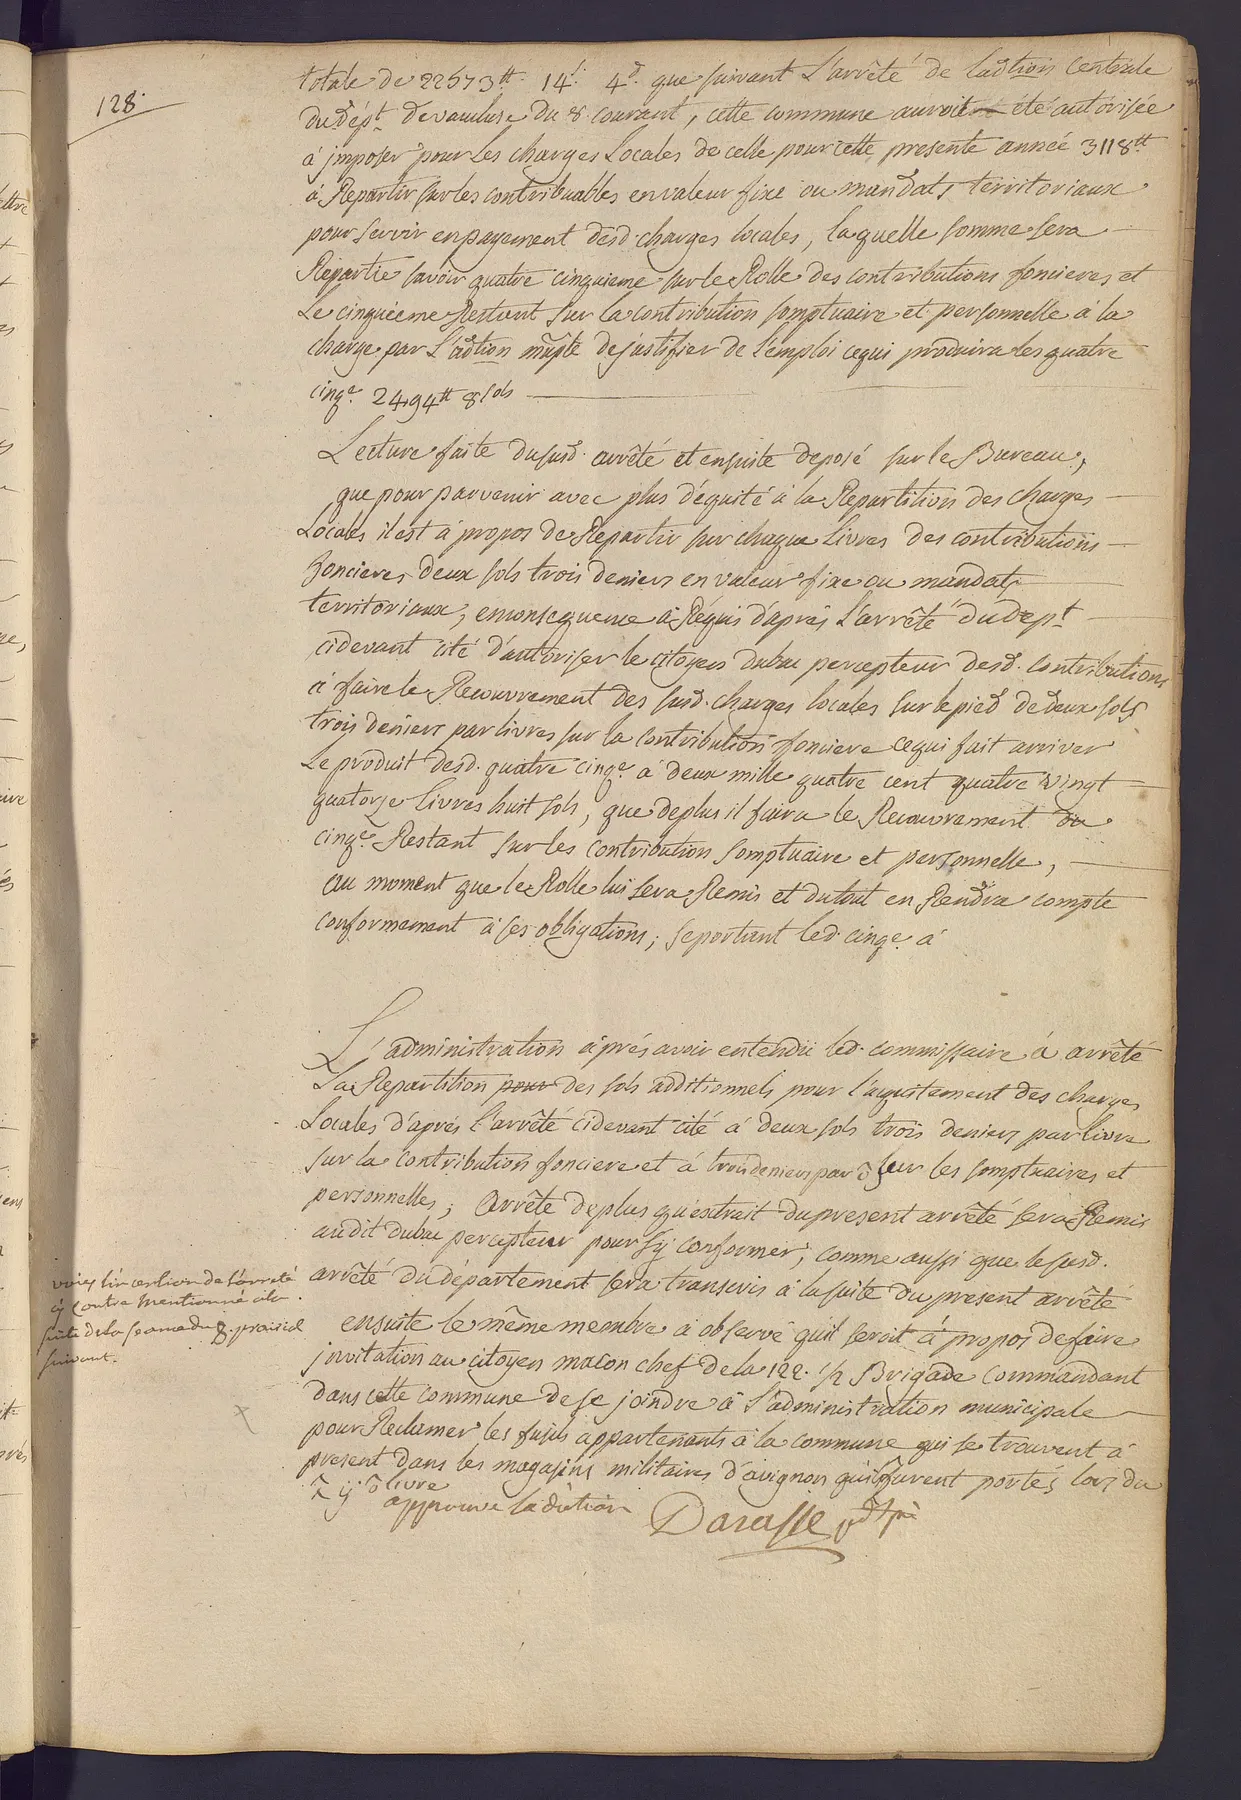 128.
totale de 22573tt. 14s. 4d. que suivant L'arrêté de Ladtion Centrale
du dépt. de vaucluse du 8. courant, cette commune auroit été autorisée
à jmposer pour les charges Locales de celle pour cette presente année 3118tt
à Repartir sur les contribuables en valeur fixe ou mandats territoriaux
pour servir en payement desd. charges locales, laquelle somme sera
Répartie savoir quatre cinquieme sur le Rolle des contributions foncieres et
Le cinquieme Restant sur la contribution somptuaire et personnelle à la
charge par L'adtion mûple de justifier de l'emploi ce qui produira les quatre
cinqe. 2494tt 8 sols
Lecture faite du susd. arrêté et ensuite deposé sur le Bureau,
que pour parvenir avec plus d'équité à la Repartition des charges
Locales il est à propos de Repartir sur chaque Livres des contributions
foncieres deux sols trois deniers en valeur fixe ou mandats
territoriaux, en consequence à Réquis d'après L'arrêté du dept.
cidevant cité d'autoriser le citoyen dubac percepteur desd. contributions
à faire le Recouvrement des susd. charges locales sur le pied de deux sols
trois deniers par livres sur la contribution fonciere ce qui fait arriver
Le produit desd. quatre cinqe. à deux mille quatre cent quatre vingt
quatorze livres huit sols, que de plus il faira le Recouvrement du
cinqe. Restant sur les contribution somptuaire et personnelle,
au moment que le Rolle lui sera Remis et du tout en Rendra compte
conformement à ses obligations, se portant led. cinqe. à
L'administration après avoir entendu led. commissaire à arrêté
La Repartition pour des sols additionnels pour l'aquitement des charges
Locales d'après l'arrêté cidevant cité à deux sols trois deniers par livre
sur la contribution fonciere et à trois deniers par sur les somptuaires et
personnelles; arrête de plus qu'extrait du present arrêté sera Remis
audit dubac percepteur pour sÿ conformer, comme aussi que le susd.
arrêté du département sera transcris à la suite du present arrêté
voies l'insertion de l'arrêté
cy contre mentionné à la
suite de la seance du 8. prairial
suivant.
ensuite le même membre à observé qu'il seroit à propos de faire
jnvitation au citoyen macon chef de la 122. 1/2 Brigade commandant
dans cette commune de se joindre à L'administration municipale
pour Reclamer les fusils appartenants à la commune qui se trouvent à
present dans les magasins militaires d'avignon qu'il furent portés lors du
livre
approuve la dition Darasse